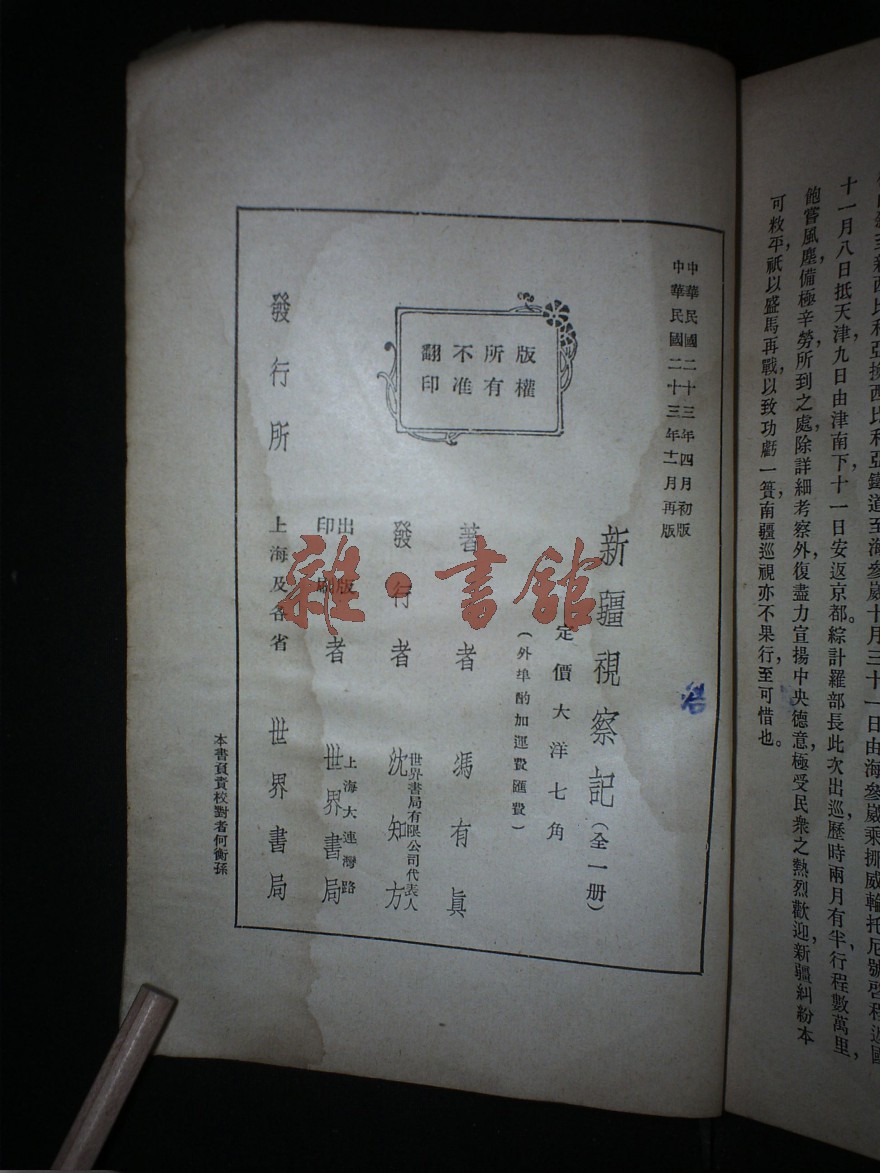 由海至新西比利亞換西比利亞鐵道至海參崴十月三十一日由海參崴乘挪威輪托尼號啓程返國
十一月八日抵天津，九日由津南下十一日安返京都。綜計羅部長此次出巡歷時兩月有半，行程數萬里，
飽嘗風塵，備極辛勞，所到之處，除詳細考察外，復盡力宣揚中央德意，極受民衆之熱烈歡迎，新疆糾紛本
可敉平，祇以盛馬再戰，以致功虧一簣，南疆巡視，亦不果行，至可惜也。
中華民國二十三年四月初版
中華民國二十三年十二月再版
新疆視察記（全一册）
定價大洋七角
（外埠酌加運費匯費）
版權
所有
不准
翻印
著者 馮有眞
發行者 世界書局有限公司代表人 沈知方
出版
印刷者 上海大連灣路 世界書局
發行所 上海及各省 世界書局
本書負責校對者何衡孫
雜·書館